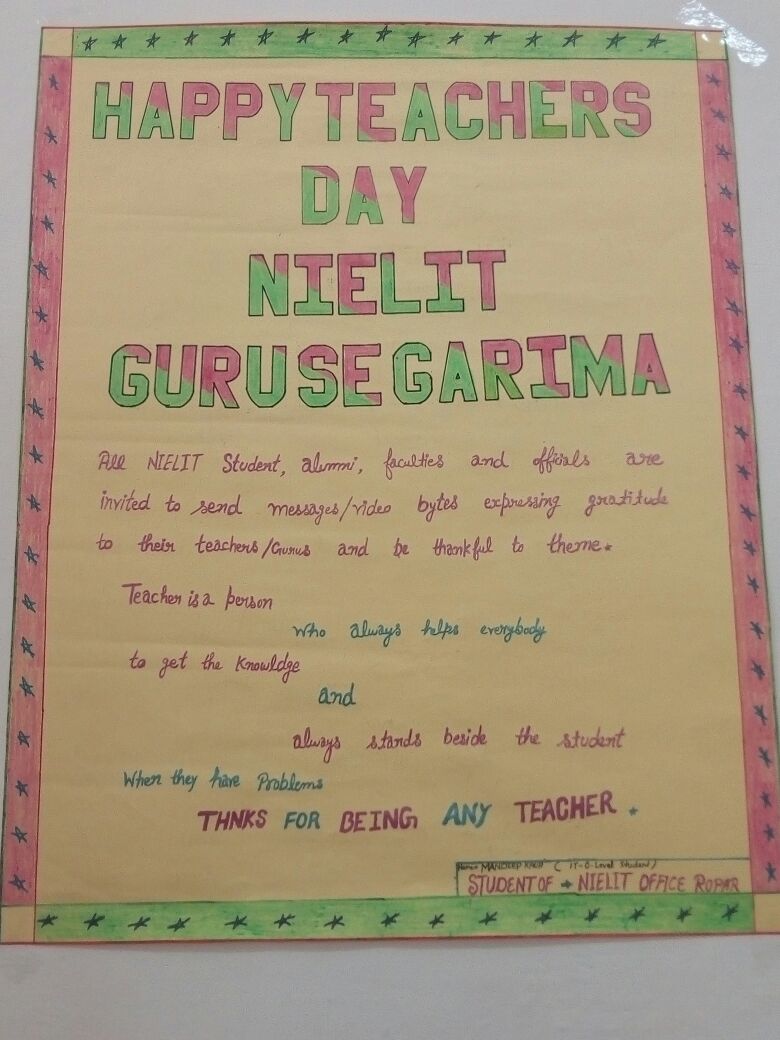 HAPPY TEACHERS
DAY
NIELIT
GURU SE GARIMA
All NIELIT Student, alumni, faculties and officials are
invited to send messages/video bytes expressing gratitude
to their teachers/Gurus and be thankful to theme.
Teacher is a person
who always helps everybody
to get the Knowldge
and
always stands beside the student
When they have Problems
THNKS FOR BEING ANY TEACHER.
Name MANDEEP KAUR ( IT-O-Level Student)
STUDENT OF → NIELIT OFFICE ROPAR